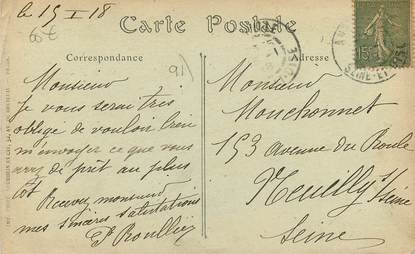 le 15 I 18
6€
Carte Postale
Correspondance
Adresse
91
Monsieur
Je vous serai très
oblige de vouloir bien
m'envoyer ce que vous
avez de prêt au plus
tôt
Recevez monsieur
mes sincères salutations
Monsieur
Mouchonnet
153 avenue du Roule
Neuilly s/Seine
Seine
15
SEINE-ET-OISE